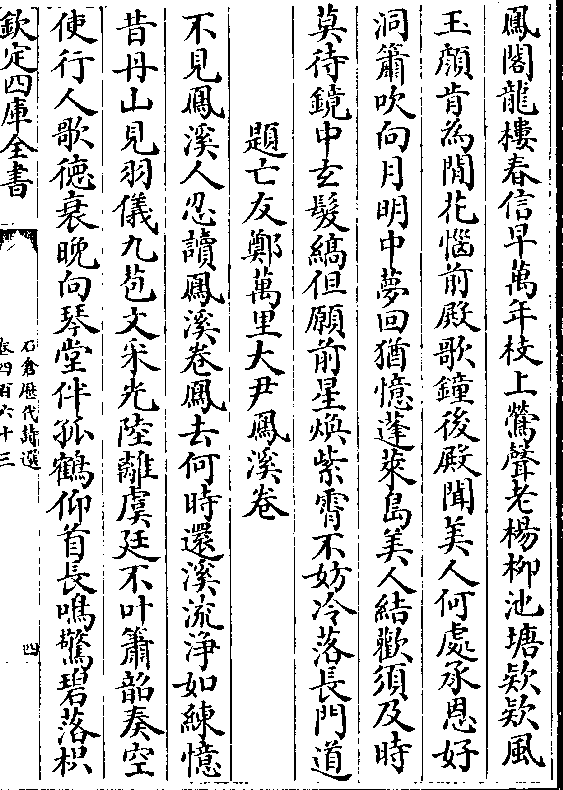 鳳閣龍樓春信早萬年枝上鶯聲老楊柳池塘欵欵風
玉顔肯為閒花惱前殿歌鐘後殿聞美人何處承恩好
洞簫吹向月明中夢回猶憶蓬萊島美人結歡須及時
莫待鏡中玄髮縞但願前星煥紫霄不妨冷落長門道
題亡友鄭萬里大尹鳳溪卷
不見鳳溪人忍讀鳳溪卷鳳去何時還溪流浄如練憶
昔丹山見羽儀九苞文采光陸離虞廷不叶簫韶奏空
使行人歌德衰晚向琴堂伴孤鶴仰首長鳴驚碧落枳
欽定四庫全書
石倉歴代詩選
卷四百六十三
四